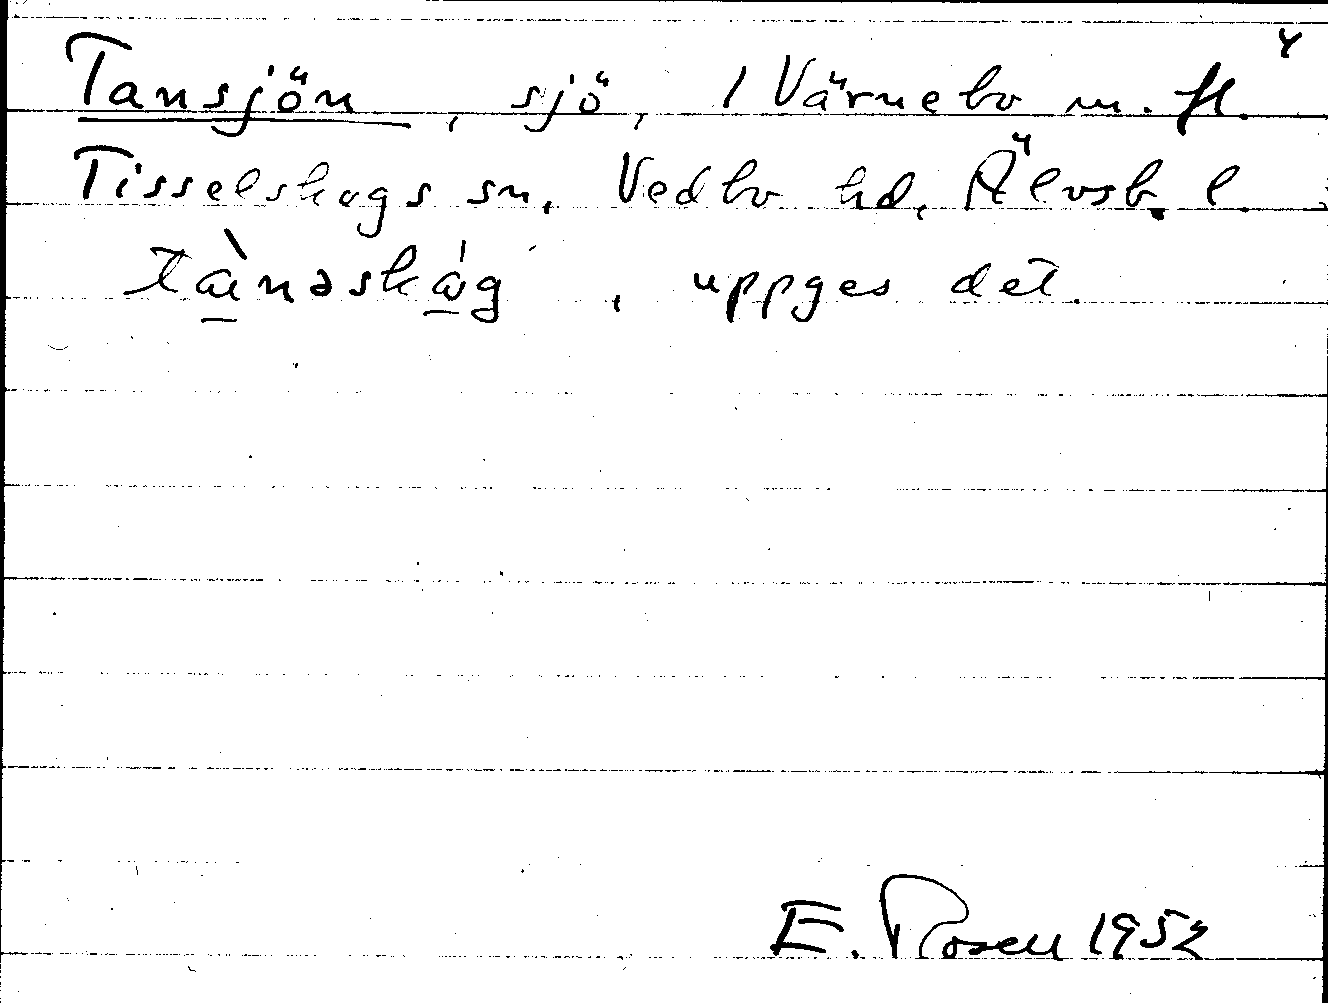 Tansjön, sjö, 1 Värnebo m. fl.
Tisselskogs sn, Vedbo hd, Älvsb. l.
, uppges det.
E. Rosen 1952